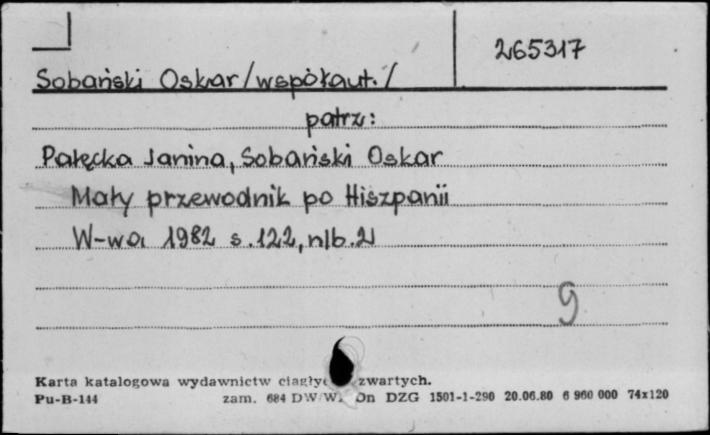 265317
Sobański Oskar /współaut./
patrz:
Pałęcka Janina, Sobański Oskar
Mały przewodnik po Hiszpanii
W-wa 1982 s.122, nlb.2
9
Karta katalogowa wydawnictw zwartych.
Pu-B-144 zam. 684 DW DZG 1501-1-290 20.06.80 6 960 000 74x120